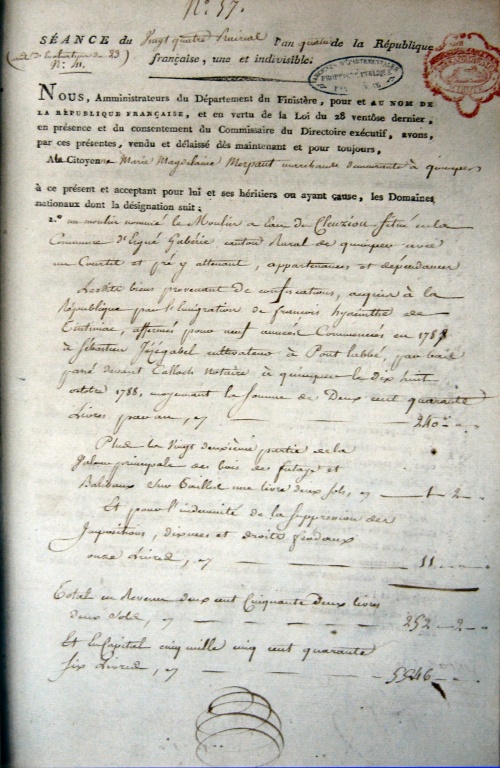 N.º 37.
SÉANCE du Vingt quatre Prairial l'an quatre de la République
française, une et indivisible.
N.º 41.
NOUS, Administrateurs du Département du Finistère, pour et AU NOM DE
LA RÉPUBLIQUE FRANÇAISE, et en vertu de la Loi du 28 ventôse dernier,
en présence et du consentement du Commissaire du Directoire exécutif, avons,
par ces présentes, vendu et délaissé dès maintenant et pour toujours,
A la Citoyenne Marie Magdelaine Merpaut marchande demeurante à quimper
à ce présent et acceptant pour lui et ses héritiers ou ayant cause, les Domaines
nationaux dont la désignation suit;
1.º un moulin nommé le Moulin a Eau de Cleuziou situé en la
Commune d'Ergué Gabéric canton Rural de quimper avec
un Courtil et pré y attenant, appartenances et dépendances
Lesdits biens provenant de confiscations, acquis à la
République par l'émigration de françois hyacinthe de
Tintiniac, affermés pour neuf années Commencées en 178
à Sébastien Jézégabel cultivateur à Pont labbé, par bail
passé devant Calloch notaire à quimper le dix huit
octobre 1788, moyennant la somme de Deux cent quarante
Livres par an, cy 240
Plus la Vingt deuxième partie de la
valeur principale des bois de futaye et
Baliveaux Une livre deux sols, cy 1 2
Et pour l'indemnité de la suppression des
Impositions, dixmes et droits féodaux
onze Livres, cy 11
Total en Revenu deux cent Cinquante deux livres
deux Sols, cy 252 2
Et en Capital cinq mille cinq cent quarante
six Livres, cy 5546